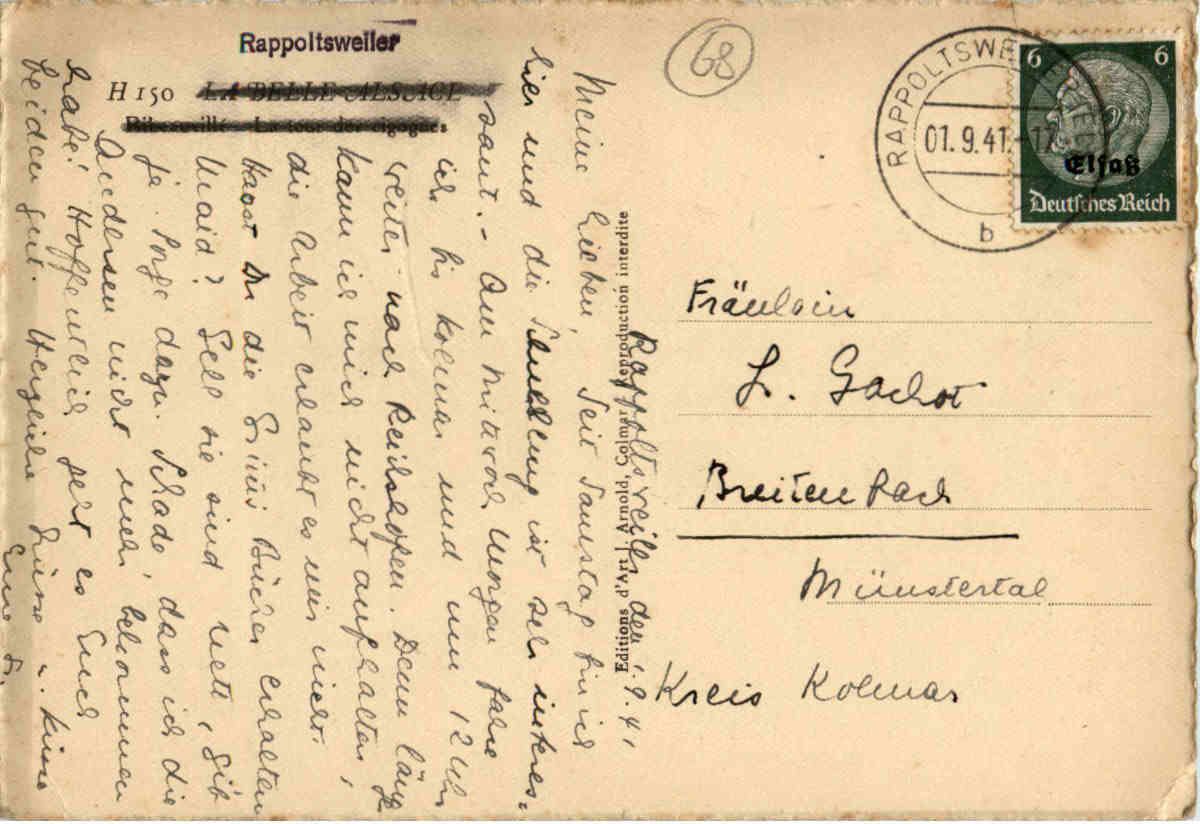 Rappoltsweiler
H 150 LA BELLE ALSACE
Ribeauvillé - La tour des cigognes
68
RAPPOLTSWEILER
01.9.41.-17
b
6 6
Elsaß
Deutsches Reich
Editions d'Art J. Arnold, Colmar reproduction interdite
Rappoltsweiler, den 1.9.41
Meine Lieben, Seit Samstag bin ich
hier und die Schulung ist sehr interes-
sant. - Am Mittwoch Morgen fahre
ich bis Kolmar und um 12 Uhr
weiter nach Reichshofen. Denn länger
kann ich mich nicht aufhalten,
die Arbeit erlaubt es mir nicht.
Hast Du die Bücher erhalten
Maid? Gell sie sind nett, Gib
ja Sorge dazu. Schade, dass ich die
Andersen nicht mehr bekommen
habe! Hoffentlich geht es Euch
beiden gut. Herzliche Grüsse u. Küsse
Eure
Fräulein
L. Gachot
Breitenbach
Münstertal
Kreis Kolmar